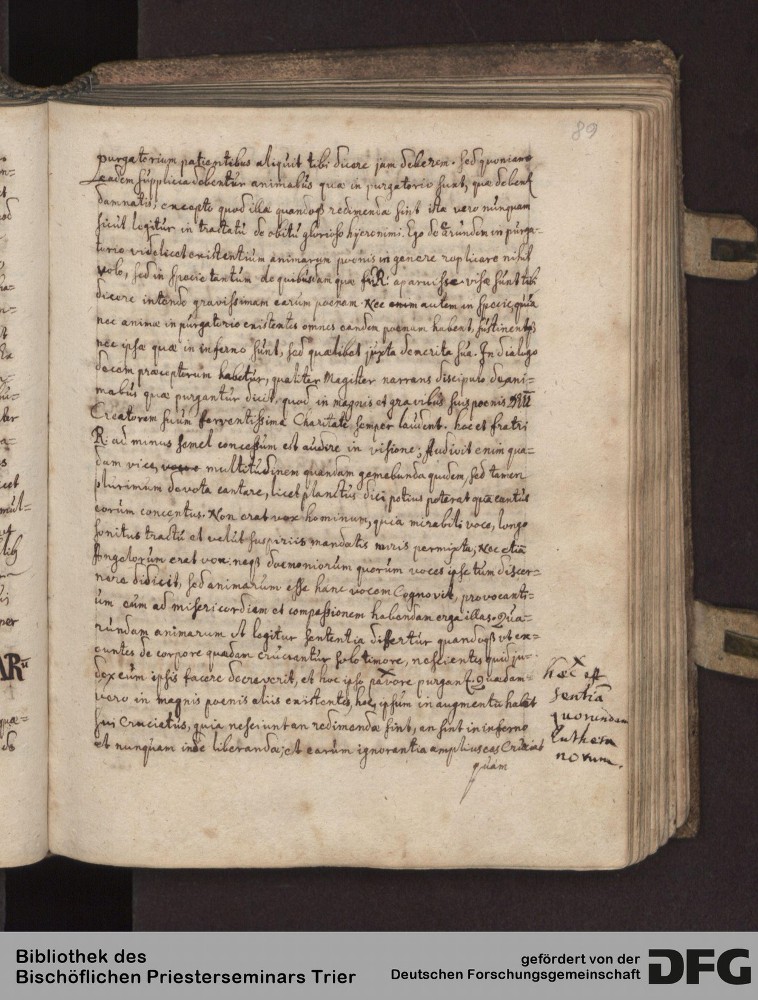 89
purgatorium patientibus aliquit tibi dicere jam deberem. sed quoniam
eadem supplicia debentur animabus quæ in purgatorio sunt, quæ debent
damnatis; excepto quod illæ quandoqꝫ redimendæ sint istæ vero nunquam
sicut legitur in tractatu de obitu gloriosi hyeronimi. Ego de earundem in purga-
torio videlicet existentium animarum poenis in genere replicare nihil
volo, sed in specie tantum de quibusdam quæ R: aparuisse visæ sunt tibi
dicere intendo gravissimam earum poenam. Nec enim autem in specie, quia
nec animæ in purgatorio existentes omnes eandem poenam habent, sustinentqꝫ
nec ipsæ quæ in inferno sunt, sed quælibet juxta demerita sua. In dialogo
decem præceptorum habetur, qualiter Magister narrans discipulo de ani-
mabus quæ purgantur dicit, quod in magnis et gravibus suis poenis
Creatorem suum ferventissima Charitate semper laudent. hoc et fratri
R. ad minus semel concessum est audire in visione; Audivit enim qua-
dam vice, multitudinem quandam gemebunda quidem, sed tamen
plurimum devota cantare, licet planctus dici potius poterat quã cantus
eorum concentus. Non erat vox hominum, quia mirabili voce, longo
sonitus tractu et velut suspiriis mandatis miris permixta, Nec etiã
Angelorum erat vox. neqꝫ dæmoniorum quorum voces ipse tum discer-
nere didicit, sed animarum esse hanc vocem Cognovit, provocanti-
um eum ad misericordiam et compassionem habendam erga illas. Qua-
rundam animarum ut legitur sententia differtur quandoqꝫ ut ex-
euntes de corpore quædam crucientur solo timore, nescientes quid ju-
dex eum ipsis facere decreverit, et hoc ipso pavore purgantur Quædam
vero in magnis poenis aliis existentes, hoc ipsum in augmentũ habet
sui Cruciatus, quia nesciunt an redimendæ sint, an sint in inferno
et nunquam inde liberandæ; et earum ignorantia amplius eas Cruciat
quam
hæc est
sentiã
quorundam
Luthera
norum.
Bibliothek des
Bischöflichen Priesterseminars Trier
gefördert von der
Deutschen Forschungsgemeinschaft
DFG